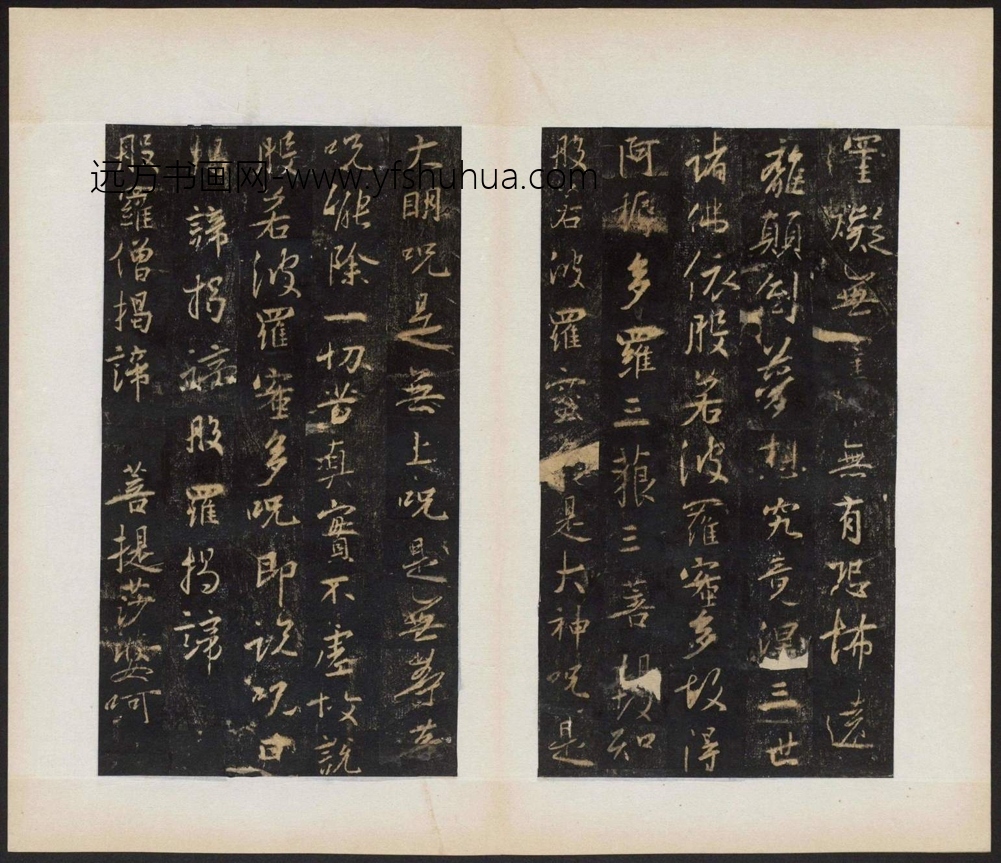 罣礙無罣 無有恐怖遠
離顛倒夢想究竟涅三世
諸佛依般若波羅蜜多故得
阿耨多羅三藐三菩提故知
般若波羅蜜 是大神呪是
大明呪是無上呪是無等等
呪能除一切苦真實不虛故說
般若波羅蜜多呪即說呪曰
揭諦揭諦般羅揭諦
般羅僧揭諦 菩提莎婆呵
远方书画网-www.yfshuhua.com